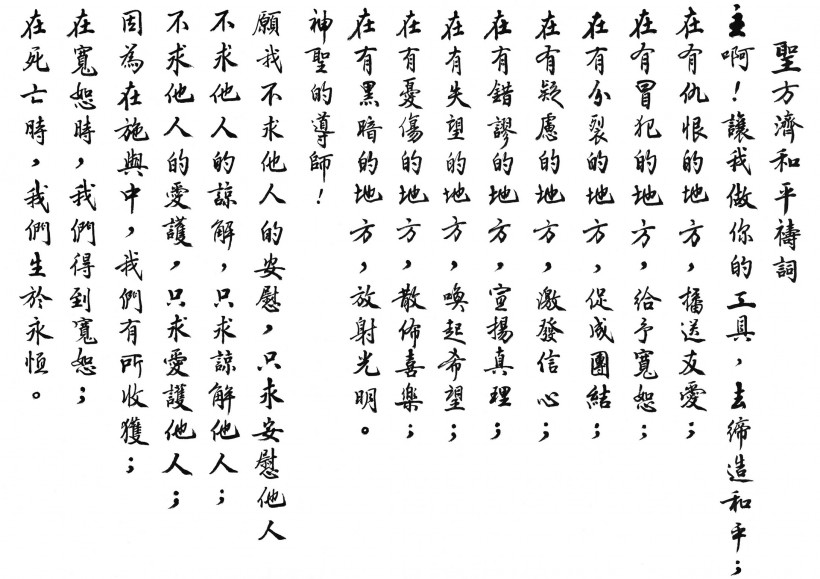 聖方濟和平禱詞
主啊！讓我做你的工具，去締造和平；
在有仇恨的地方，播送友愛；
在有冒犯的地方，給予寬恕；
在有分裂的地方，促成團結；
在有疑慮的地方，激發信心；
在有錯謬的地方，宣揚真理；
在有失望的地方，喚起希望；
在有憂傷的地方，散佈喜樂；
在有黑暗的地方，放射光明。
神聖的導師！
願我不求他人的安慰，只求安慰他人
不求他人的諒解，只求諒解他人；
不求他人的愛護，只求愛護他人；
因為在施與中，我們有所收獲；
在寬恕時，我們得到寬恕；
在死亡時，我們生於永恒。